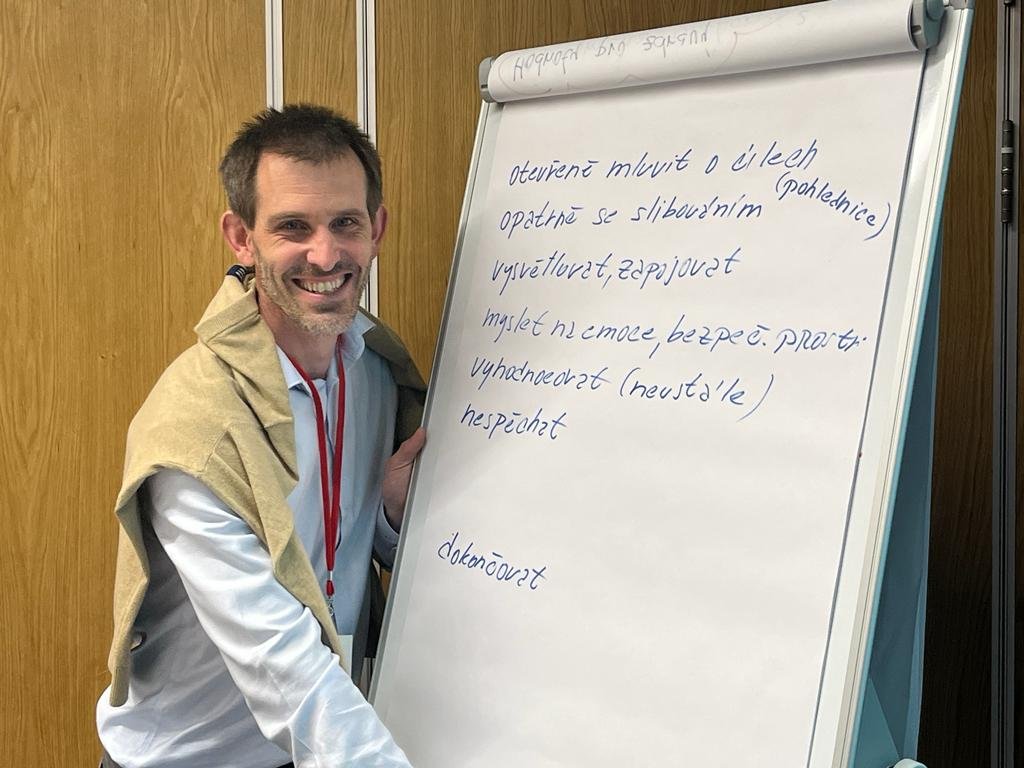 otevřeně mluvit o cílech
(pohlednice)
opatrně se slibováním
vysvětlovat, zapojovat
myslet na emoce, bezpeč. prostř.
vyhodnocovat (neustále)
nespěchat
dokončovat